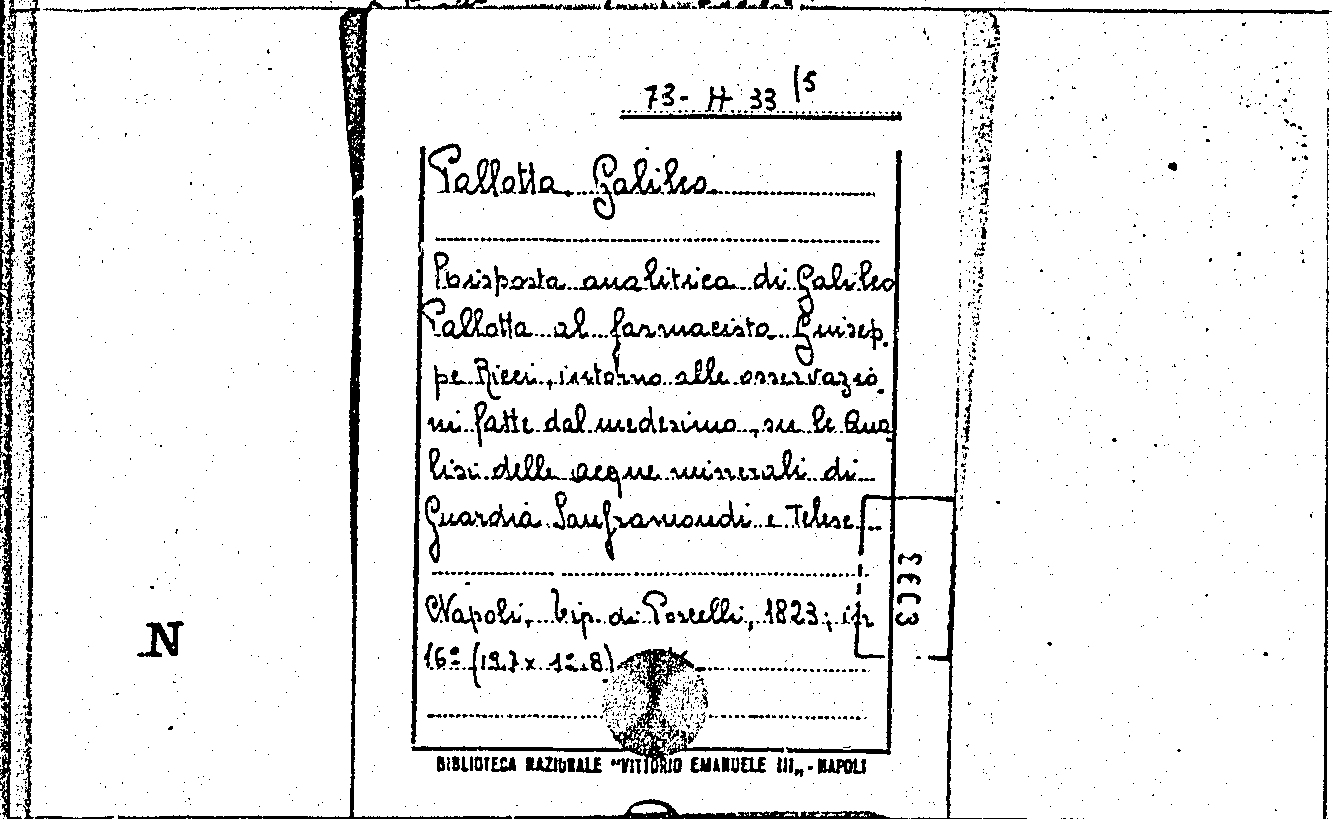 73- H 33 /5
Pallotta Galileo
Risposta analitica di Galileo
Pallotta al farmacista Giusep.
pe Ricci, intorno alle osservazio.
ni fatte dal medesimo, su le Ana
lisi delle acque minerali di
Guardia Sanframondi e Telese
Napoli, Tip. di Porcelli, 1823; in
16º (19.7 x 12.8)
BIBLIOTECA NAZIONALE "VITTORIO EMANUELE III„ - NAPOLI
N